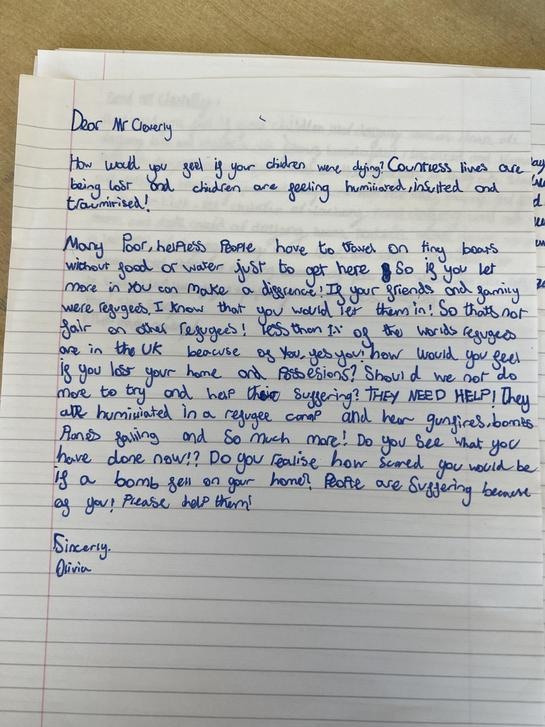 Dear Mr Cleverly
How would you feel if your children were dying? Countless lives are
being lost and children are feeling humiliated, insulted and
traumirised!
Many Poor, helpless People have to travel on tiny boats
without food or water just to get here So if you let
more in you can make a difference! If your friends and family
were refugees, I know that you would let them in! So thats not
fair on other refugees! less than 1% of the worlds refugees
are in the UK beacuse of you, yes you! how would you feel
if you lost your home and Possesions? Should we not do
more to try and help their suffering? THEY NEED HELP! They
are humiliated in a refugee camp and hear gunfires, bombs
Planes falling and so much more! Do you see what you
have done now!? Do you realise how scared you would be
if a bomb fell on your home? People are suffering because
of you! Please help them!
Sincerly.
Olivia